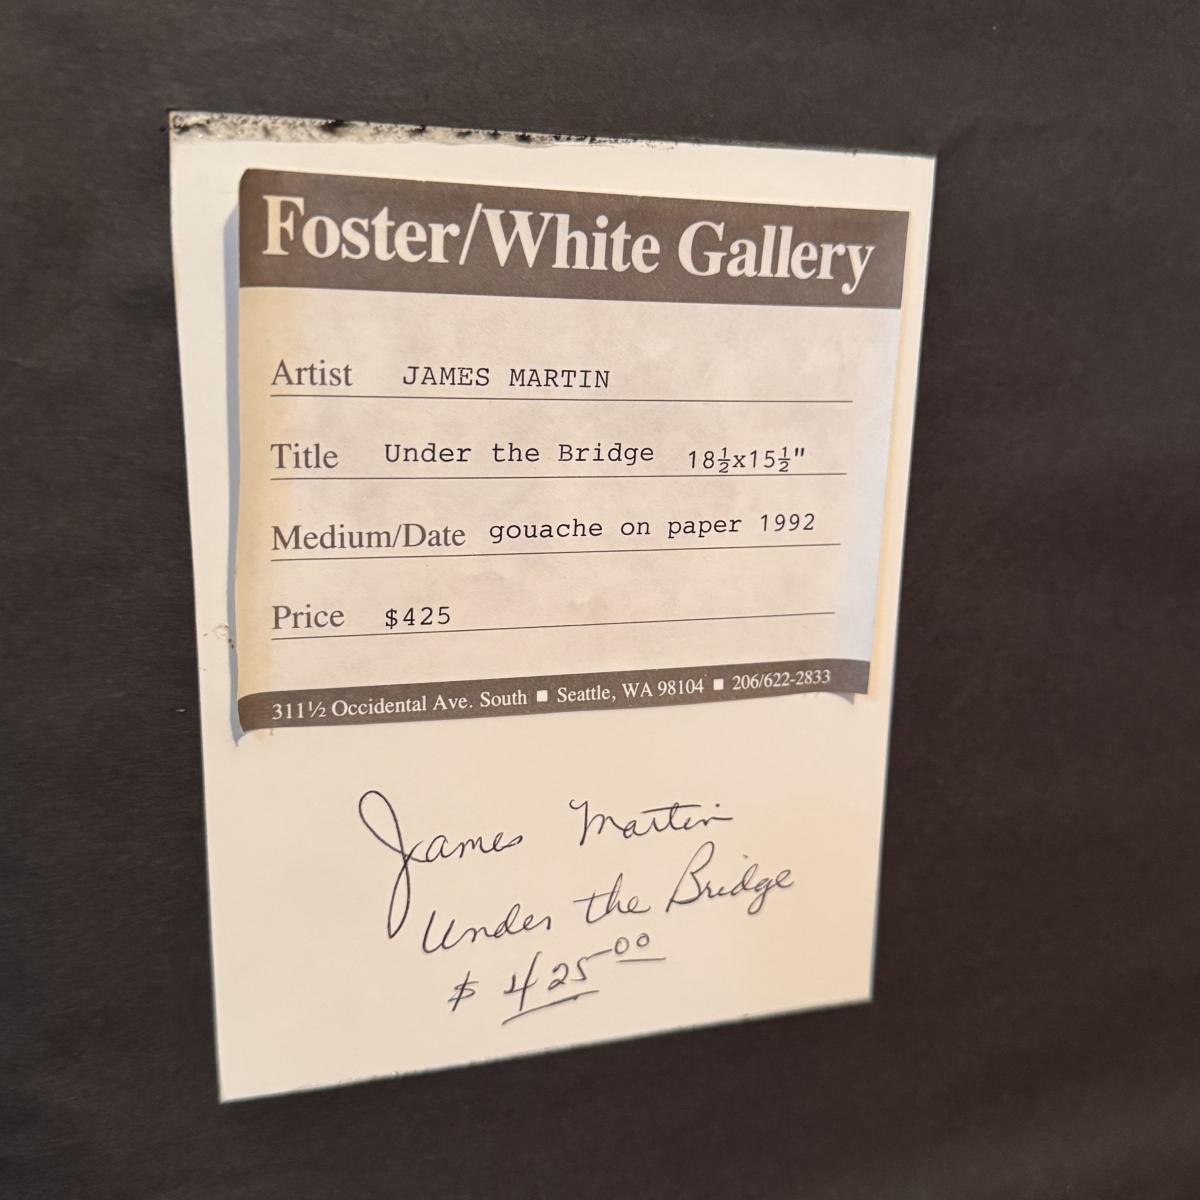 Foster/White Gallery
Artist JAMES MARTIN
Title Under the Bridge 18½x15½"
Medium/Date gouache on paper 1992
Price $425
311½ Occidental Ave. South ■ Seattle, WA 98104 ■ 206/622-2833
James Martin
Under the Bridge
$ 425.00